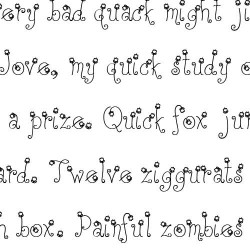 ery bad quack might ji
Jove, my quick study o
a prize. Quick fox jum
ard. Twelve ziggurats
n box. Painful zombies